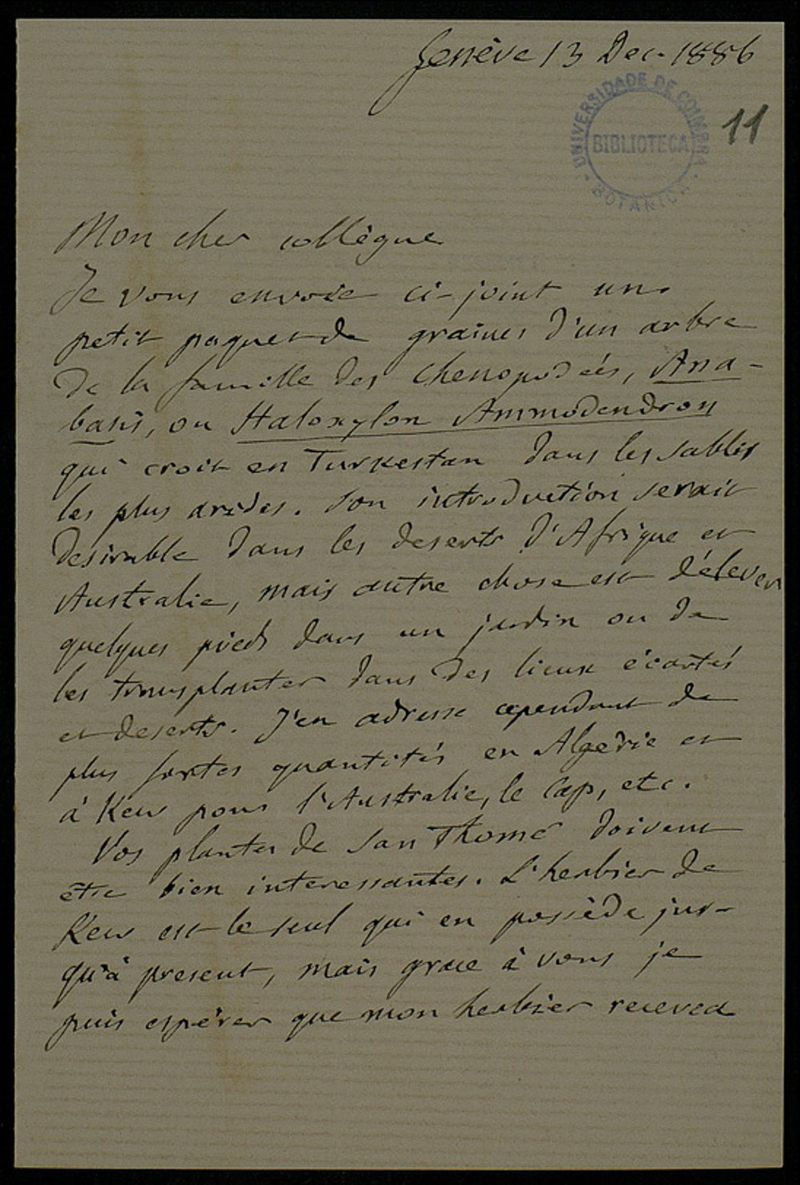 Genève 13 Dec. 1886
UNIVERSIDADE DE COIMBRA
BIBLIOTECA
BOTANICA
11
Mon cher collègue
Je vous envoie ci-joint un
petit paquet de graines d'un arbre
de la famille des Chenopodées, Ana-
basis, ou Haloxylon Ammodendron
qui croit en Turkestan dans les sables
les plus arides. Son introduction serait
desirable dans les deserts d'Afrique et
Australie, mais autre chose est d'élever
quelques pieds dans un jardin ou de
les transplanter dans des lieux écartés
et deserts. J'en adresse cependant de
plus fortes quantités en Algerie et
à Kew pour l'Australie, le Cap, etc.
Vos plantes de San Thomé doivent
être bien interessantes. L'herbier de
Kew est le seul qui en possède jus-
qu'à present, mais grace à vous je
puis espérer que mon herbier recevra